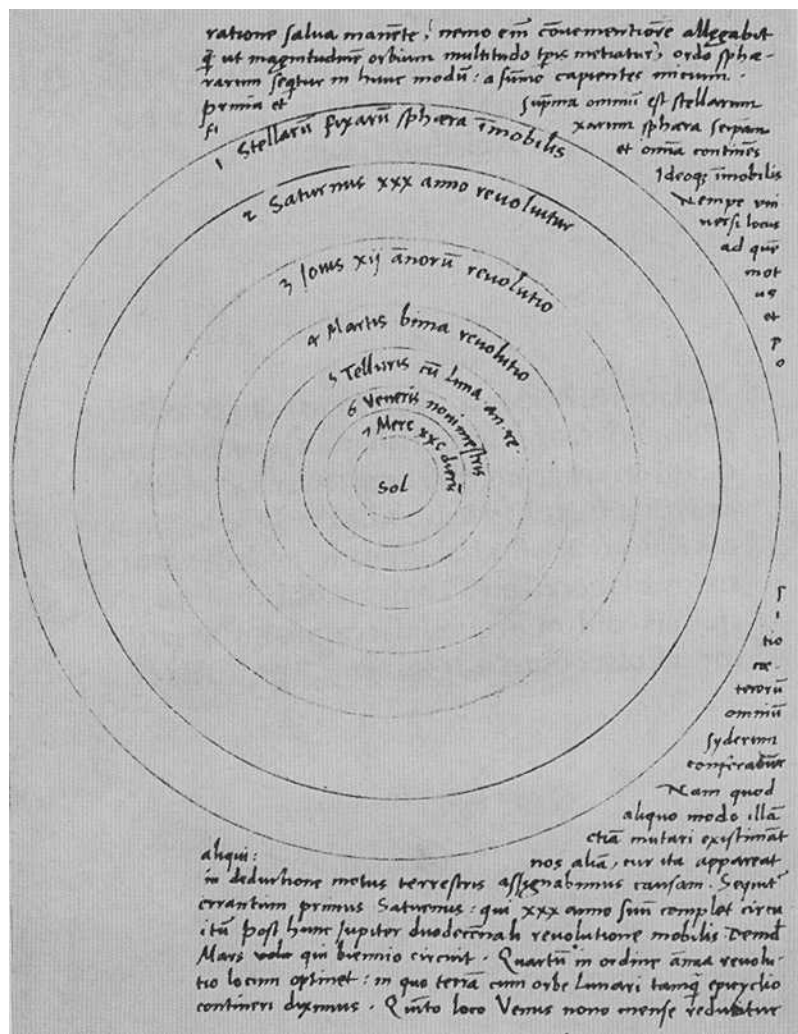 ratione salva manēte, nemo em̄ cōvenientiorē allegabit
q̄ ut magnitudinē orbium multitudo tp̄is metiatur, ordo sphæ-
rarum sequitur in hunc modū: a sūmo capientes inicium.
prima et sup̄ma omniū est stellarum
fi xarum sphæra seipsam
et omnia continēs
Ideoq; īmobilis
Nempe uni
versi locus
ad quē
mot
us
et
p
o
1 Stellarū fixarū sphæra īmobilis
2 Saturnus xxx anno revolvitur
3 Jovis xij ānorū revolutio
4 Martis bima revolutio
5 Telluris cū luna an. re.
6 Veneris nonimestris
7 Merc xxc dierū
Sol
s
i
tio
cæ-
terorū
omniū
syderum
conferatur
Nam quod
aliquo modo illā
etiā mutari existimāt
aliqui: nos aliā, cur ita appareat
in deductione motus terrestris assignabimus causam. Sequit
errantium primus Saturnus: qui xxx anno suū complet circu
itū post hunc Jupiter duodecennali revolutione mobilis. Demd
Mars qui biennio circuit. Quartū in ordine annua revolu-
tio locum optinet: in quo terrā cum orbe Lunari tamq̄ epicyclio
contineri diximus. Quīto loco Venus nono mense reducitur